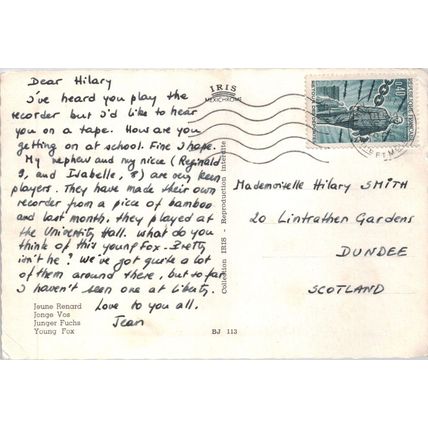 Dear Hilary
I've heard you play the
recorder but I'd like to hear
you on a tape. How are you
getting on at school. Fine I hope.
My nephew and my niece (Reginald
9, and Isabelle, 8) are very keen
players. They have made their own
recorder from a piece of bamboo
and last month, they played at
the University Hall. What do you
think of this young Fox. Pretty
isn't he? We've got quite a lot
of them around there, but so far
I haven't seen one at liberty.
Love to you all.
Jean
Jeune Renard
Jonge Vos
Junger Fuchs
Young Fox
IRIS
MEXICHROME
Collection IRIS - Reproduction Interdite
BJ 113
0,40
Mademoiselle Hilary SMITH
20 Lintrathen Gardens
DUNDEE
SCOTLAND